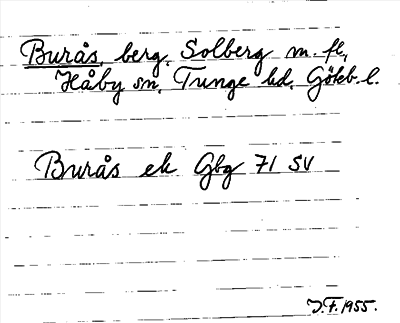 Burås, berg, Solberg m. fl.,
Håby sn, Tunge hd, Göteb. l.
Burås ek Gbg 71 SV
J.F. 1955.